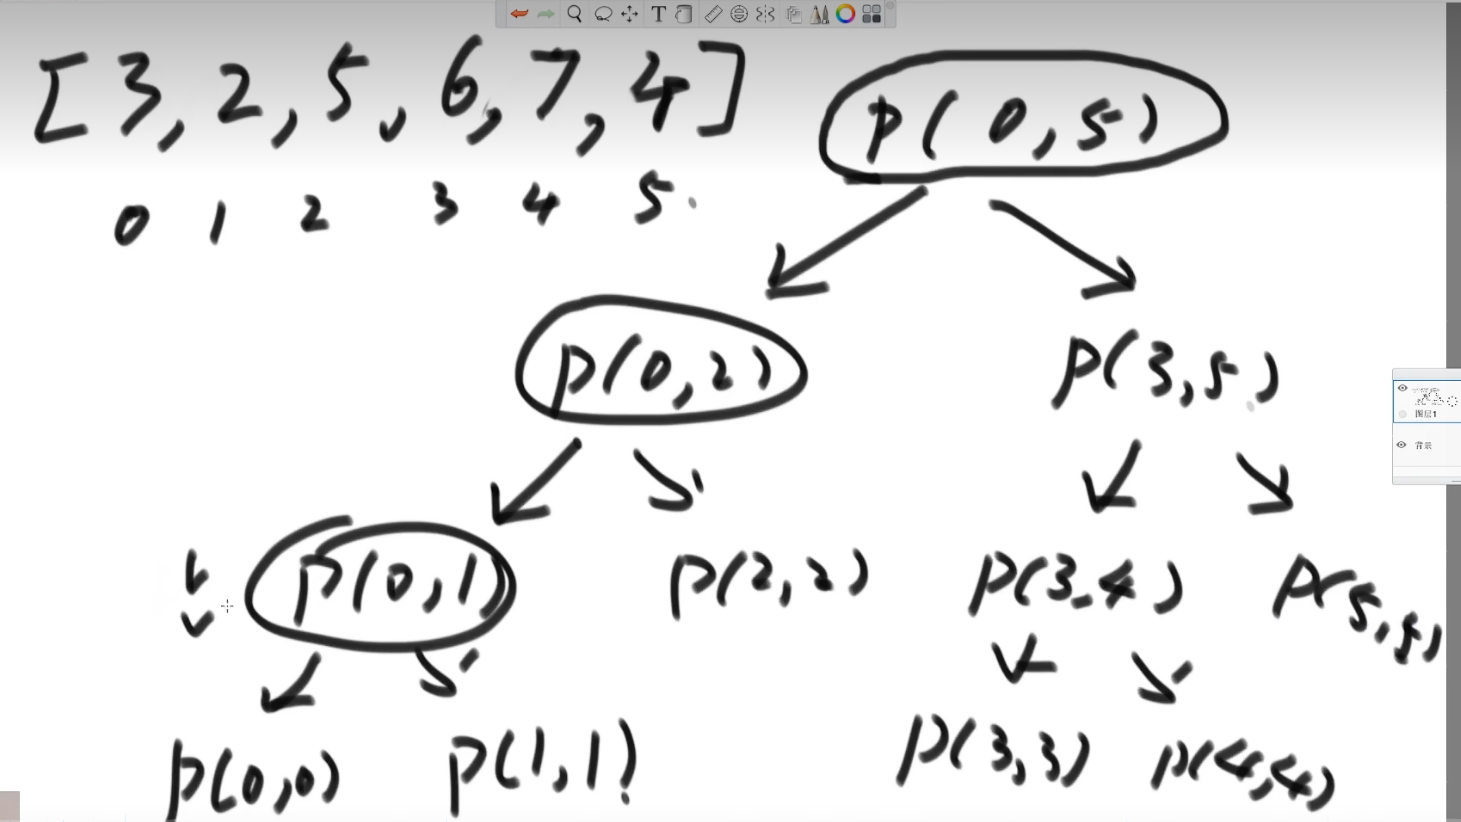 [3, 2, 5, 6, 7, 4]
0 1 2 3 4 5
p(0,5)
p(0,2) p(3,5)
p(0,1) p(2,2) p(3,4) p(5,5)
p(0,0) p(1,1) p(3,3) p(4,4)
T
图层1
背景